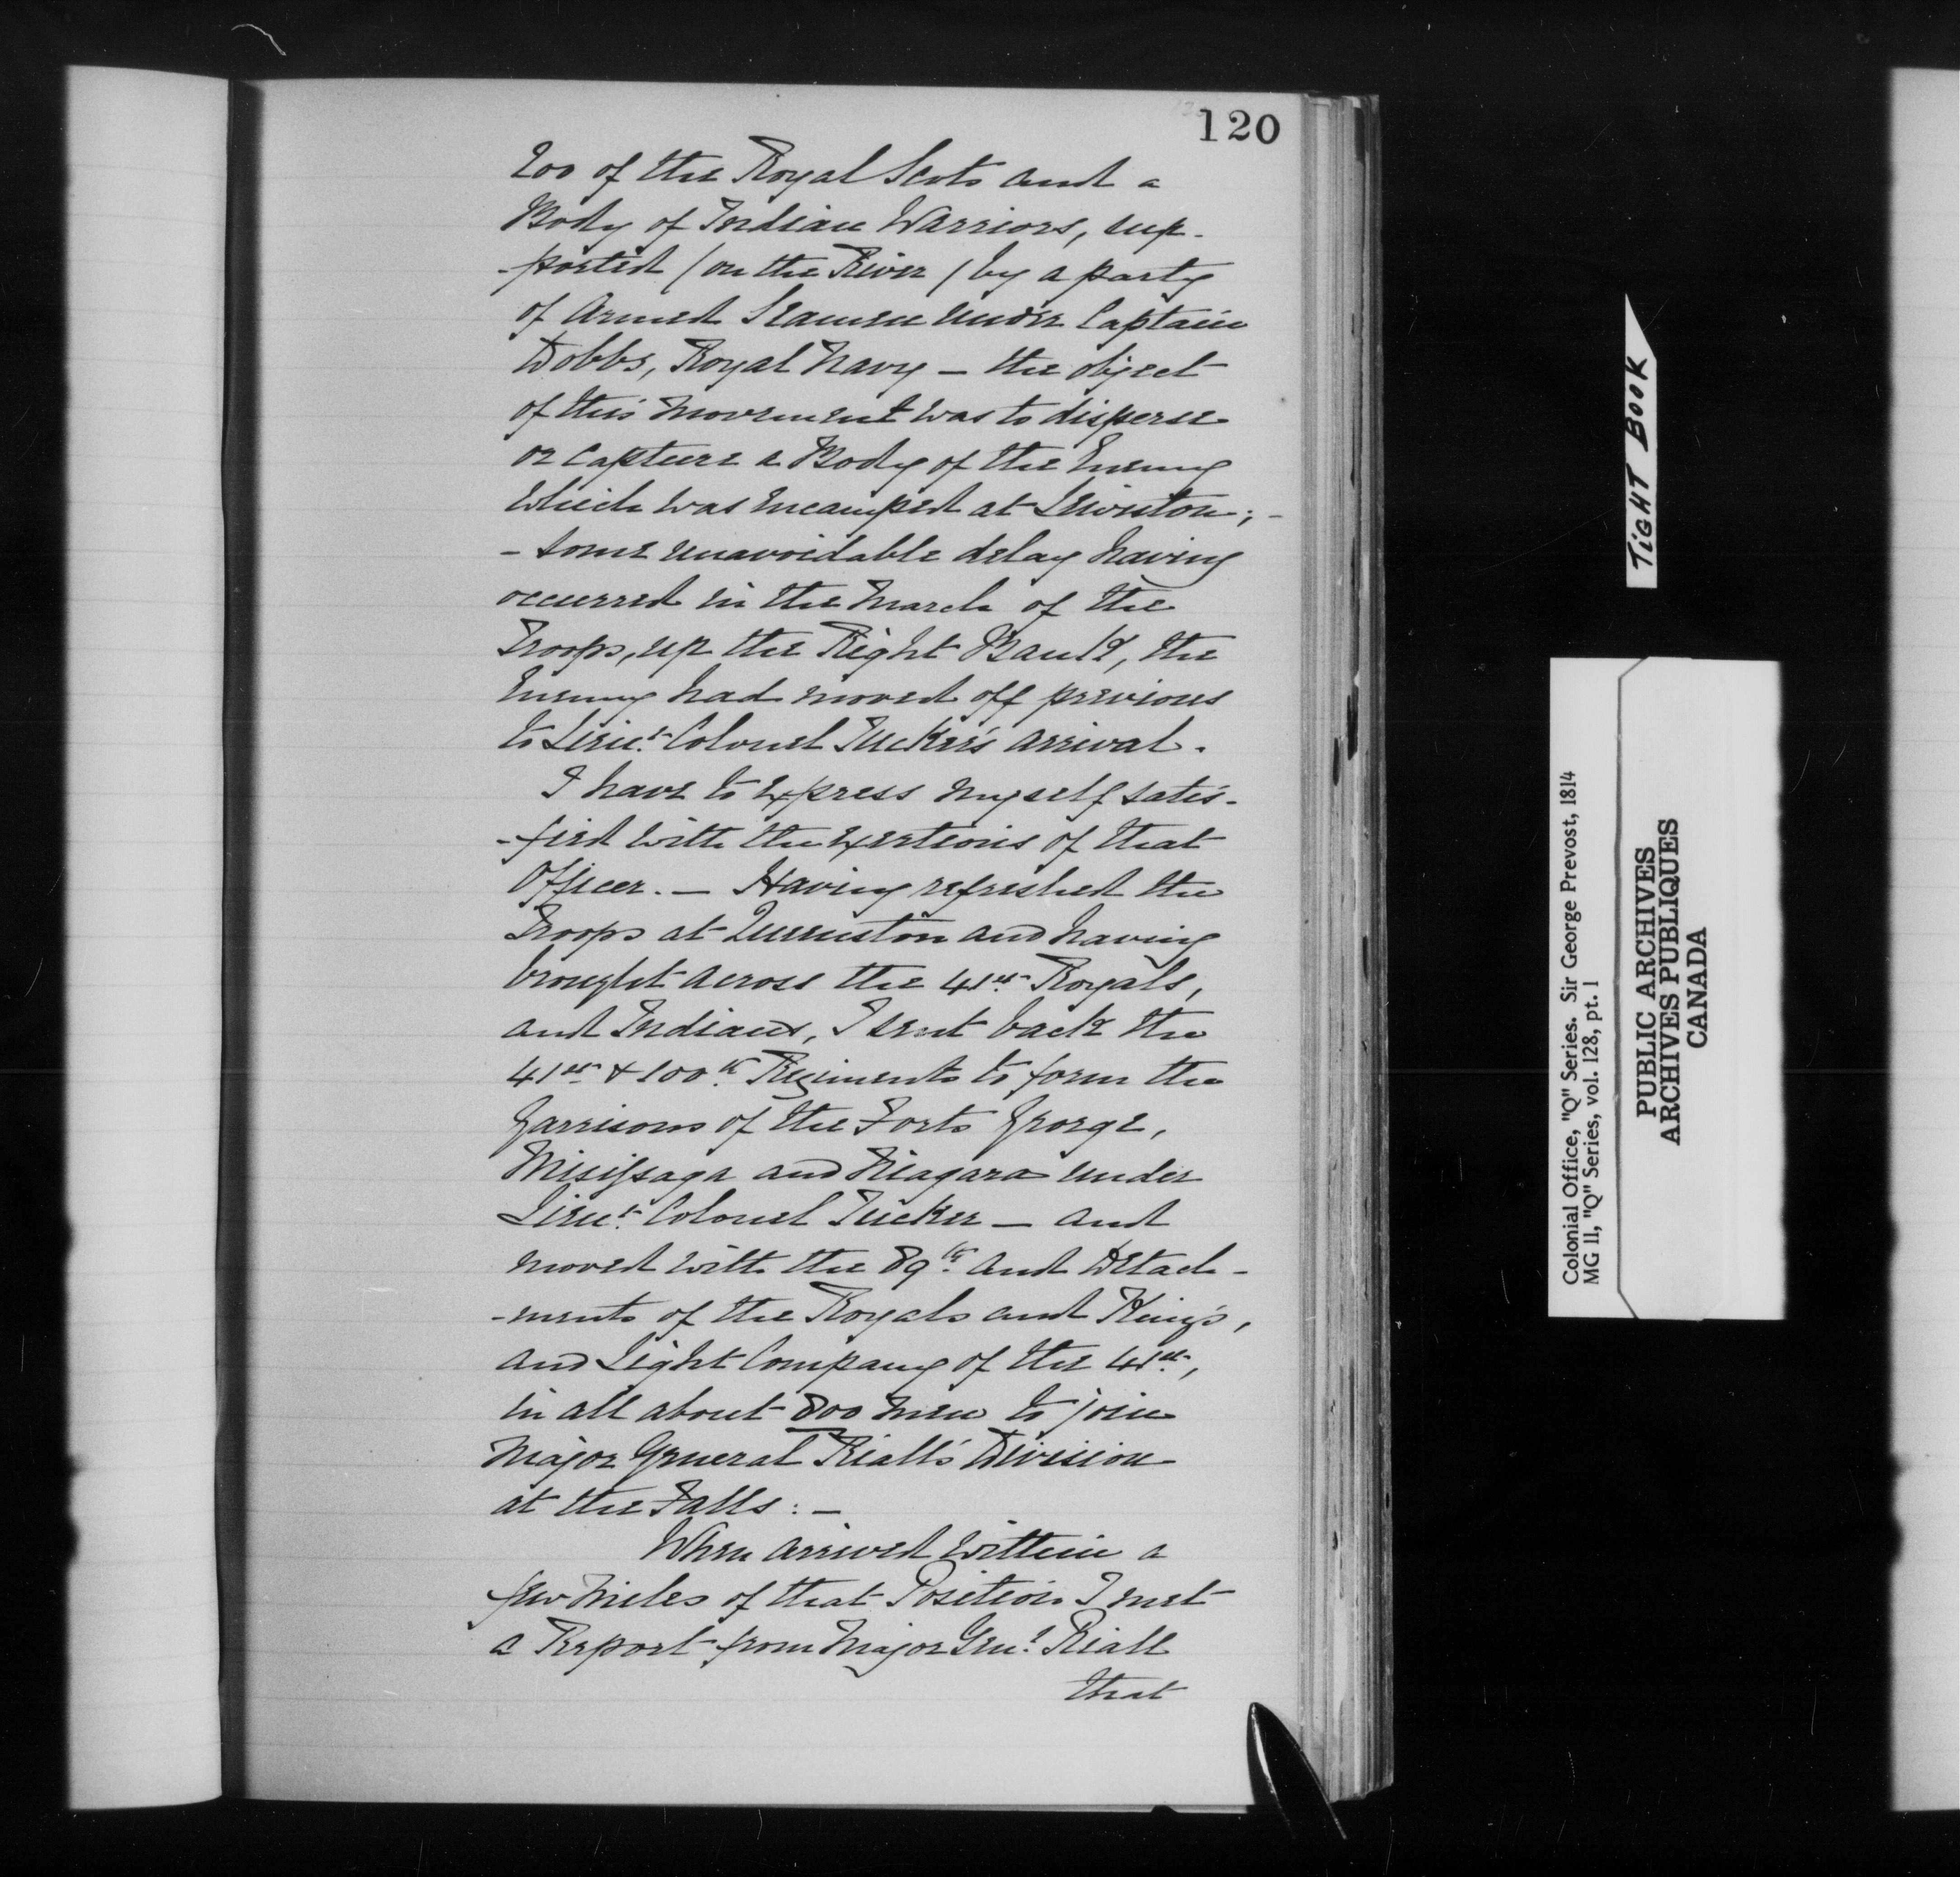 120
200 of the Royal Scots and a
Body of Indian Warriors, sup-
-ported (on the River) by a party
of Armed Seamen under Captain
Dobbs, Royal Navy – the object
of this movement was to disperse
or capture a Body of the Enemy
which was encamped at Lewiston; –
– some unavoidable delay having
occurred in the March of the
Troops, up the Right Bank, the
Enemy had moved off previous
to Lieut. Colonel Tucker's arrival.
I have to express myself satis-
-fied with the exertions of that
Officer. – Having refreshed the
Troops at Queenston and having
brought across the 41st Royals,
and Indians, I sent back the
41st & 100th Regiments to form the
Garrisons of the Forts George,
Missisaga and Niagara under
Lieut. Colonel Tucker – and
moved with the 89th and Detach-
-ments of the Royals and King's,
and Light Company of the 41st,
in all about 800 men to join
Major General Riall's Division
at the Falls: –
When arrived within a
few Miles of that Position I met
a Report from Major Genl. Riall
that
TIGHT BOOK
Colonial Office, "Q" Series. Sir George Prevost, 1814
MG 11, "Q" Series, vol. 128, pt. 1
PUBLIC ARCHIVES
ARCHIVES PUBLIQUES
CANADA